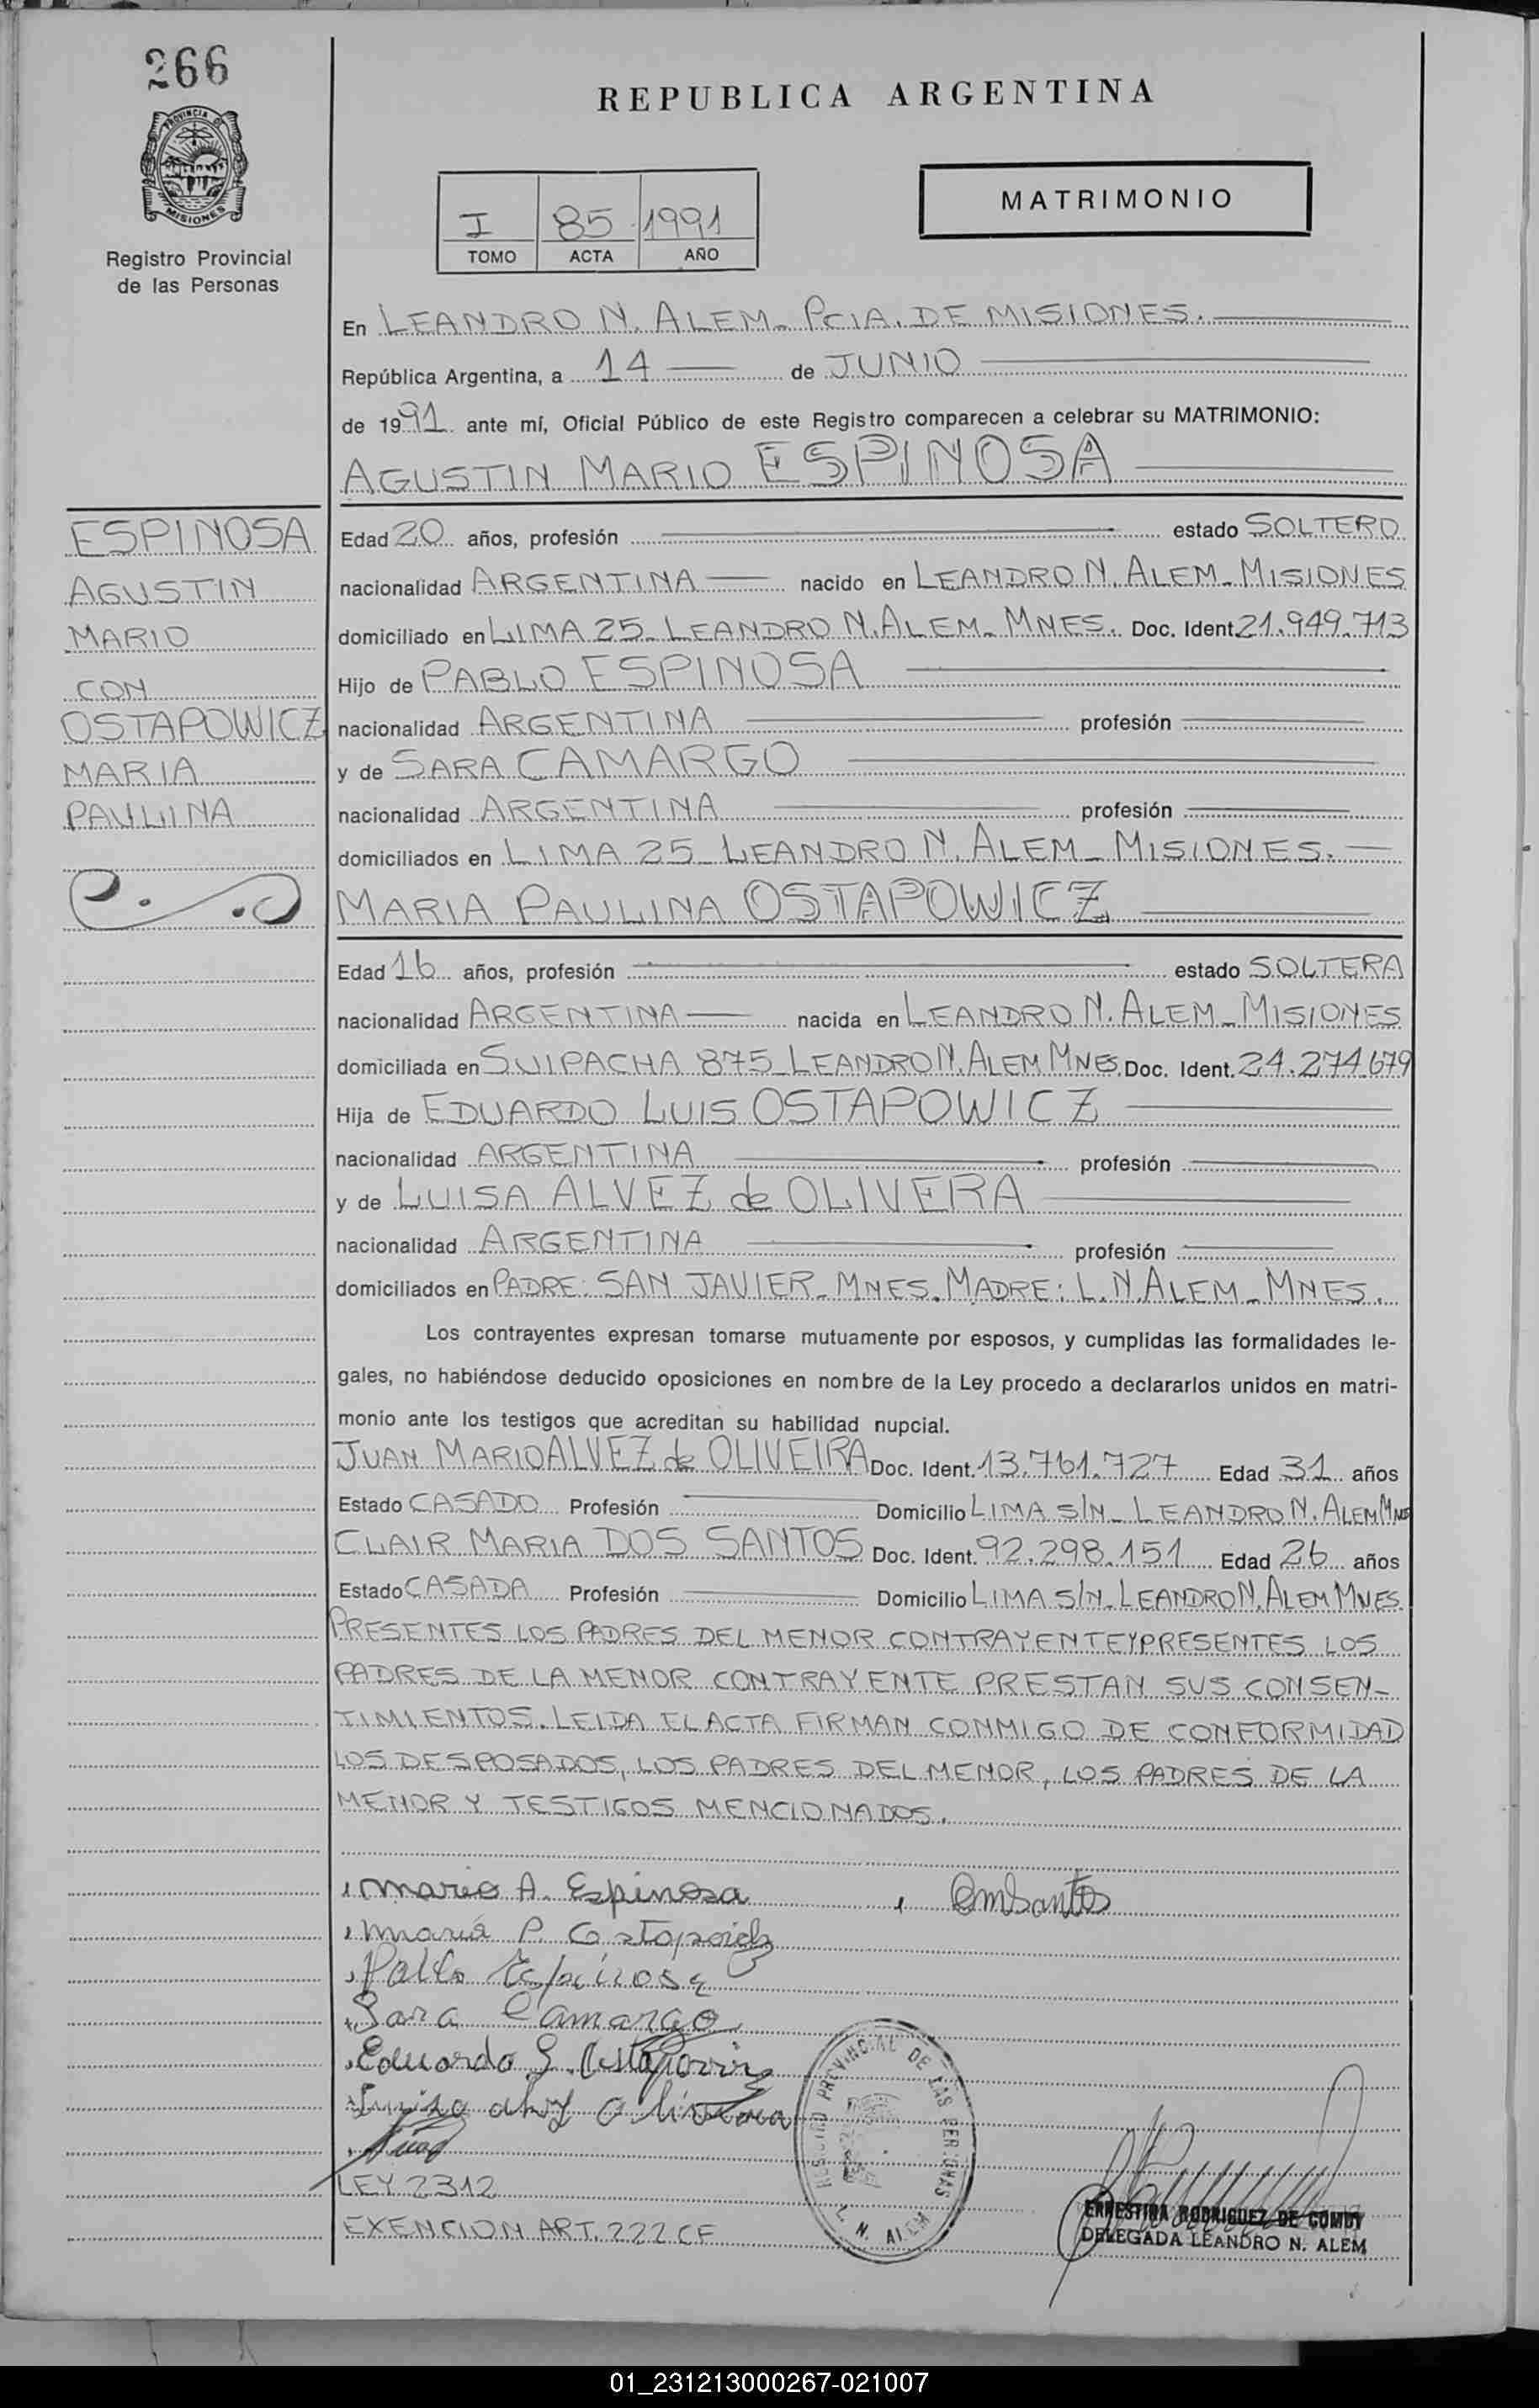 266
PROVINCIA DE
MISIONES
Registro Provincial
de las Personas
REPUBLICA ARGENTINA
MATRIMONIO
I 85 1991
TOMO ACTA AÑO
En LEANDRO N. ALEM - PCIA. DE MISIONES.
República Argentina, a 14 de JUNIO
de 1991 ante mí, Oficial Público de este Registro comparecen a celebrar su MATRIMONIO:
AGUSTIN MARIO ESPINOSA
ESPINOSA
AGUSTIN
MARIO
CON
OSTAPOWICZ
MARIA
PAULINA
Edad 20 años, profesión estado SOLTERO
nacionalidad ARGENTINA nacido en LEANDRO N. ALEM - MISIONES
domiciliado en LIMA 25 - LEANDRO N. ALEM - MNES. Doc. Ident. 21.949.713
Hijo de PABLO ESPINOSA
nacionalidad ARGENTINA profesión
y de SARA CAMARGO
nacionalidad ARGENTINA profesión
domiciliados en LIMA 25 - LEANDRO N. ALEM - MISIONES.
MARIA PAULINA OSTAPOWICZ
Edad 16 años, profesión estado SOLTERA
nacionalidad ARGENTINA nacida en LEANDRO N. ALEM - MISIONES
domiciliada en SUIPACHA 875 - LEANDRO N. ALEM MNES. Doc. Ident. 24.274.679
Hija de EDUARDO LUIS OSTAPOWICZ
nacionalidad ARGENTINA profesión
y de LUISA ALVEZ de OLIVERA
nacionalidad ARGENTINA profesión
domiciliados en PADRE: SAN JAVIER - MNES. MADRE: L.N. ALEM - MNES.
Los contrayentes expresan tomarse mutuamente por esposos, y cumplidas las formalidades le-
gales, no habiéndose deducido oposiciones en nombre de la Ley procedo a declararlos unidos en matri-
monio ante los testigos que acreditan su habilidad nupcial.
JUAN MARIO ALVEZ de OLIVEIRA Doc. Ident. 13.761.727 Edad 31 años
Estado CASADO Profesión Domicilio LIMA S/N - LEANDRO N. ALEM MNES
CLAIR MARIA DOS SANTOS Doc. Ident. 92.298.151 Edad 26 años
Estado CASADA Profesión Domicilio LIMA S/N - LEANDRO N. ALEM MNES.
PRESENTES LOS PADRES DEL MENOR CONTRAYENTE Y PRESENTES LOS
PADRES DE LA MENOR CONTRAYENTE PRESTAN SUS CONSEN-
TIMIENTOS. LEIDA EL ACTA FIRMAN CONMIGO DE CONFORMIDAD
LOS DESPOSADOS, LOS PADRES DEL MENOR, LOS PADRES DE LA
MENOR Y TESTIGOS MENCIONADOS.
Mario A. Espinosa
Maria P.
Pablo Espinosa
Sara Camargo
Eduardo
LEY 2312
EXENCION ART. 222 CF
REGISTRO PROVINCIAL DE LAS PERSONAS
L. N. ALEM
ERNESTINA RODRIGUEZ DE
DELEGADA LEANDRO N. ALEM
01_231213000267-021007